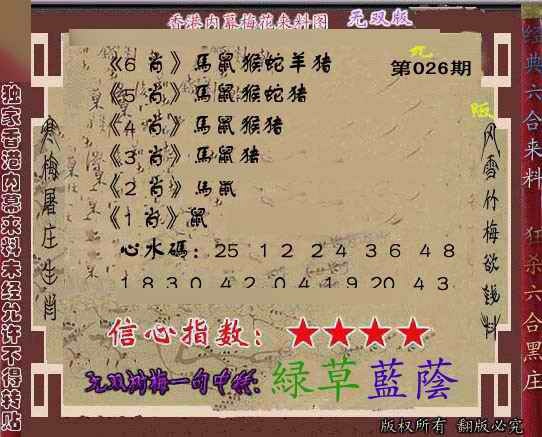 香港内幕梅花来料图 无双版
第026期
《6 肖》馬鼠猴蛇羊猪
《5 肖》馬鼠猴蛇猪
《4 肖》馬鼠猴猪
《3 肖》馬鼠猪
《2 肖》馬鼠
《1 肖》鼠
心水碼：25 12 24 36 48
18 30 42 04 19 20 43
信心指数：★★★★
緑草藍蔭
独家香港内幕来料未经允许不得转贴
寒梅屠庄生肖
风雪竹梅欲钱料
经典六合来料
狂杀六合黑庄
版权所有 翻版必究